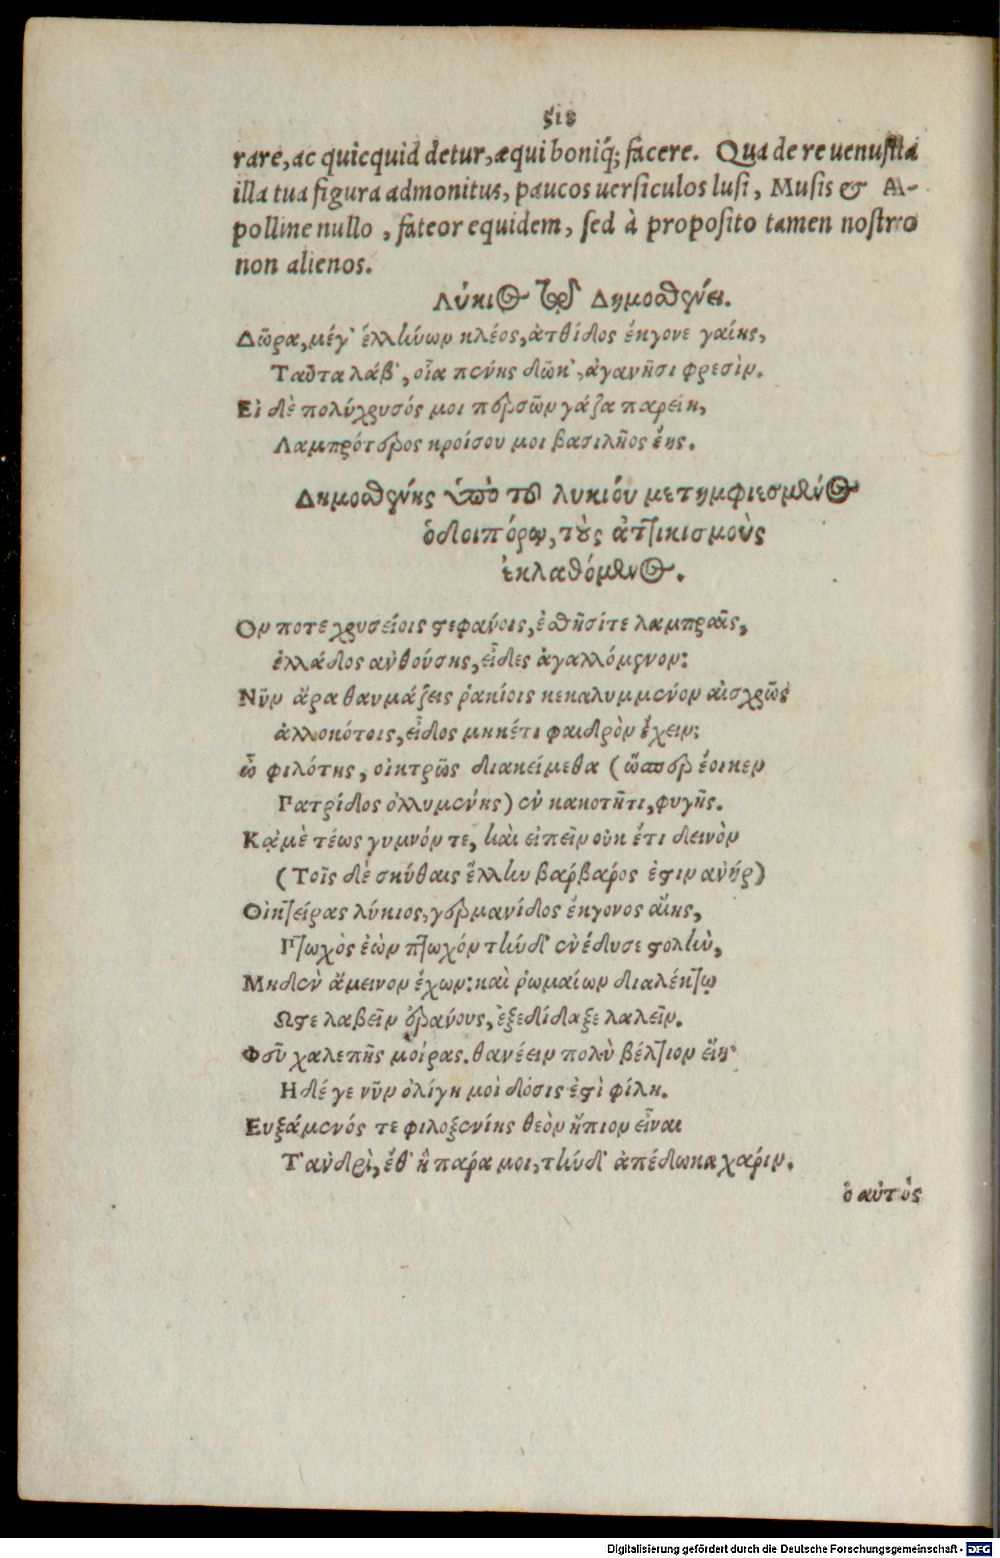 518
rare, ac quicquid detur, æqui boniq́; facere. Qua de re uenusta
illa tua figura admonitus, paucos uersiculos lusi, Musis & A-
polline nullo, fateor equidem, sed à proposito tamen nostro
non alienos.
Λύκιος τῷ Δημοσθένει.
Δῶρα, μέγ' ἑλλήνων κλέος, ἀτθίδος ἔκγονε γαίης,
Ταῦτα λάβ', οἷα πένης δῶκ', ἀγανῇσι φρεσὶν.
Εἰ δὲ πολύχρυσός μοι περσῶν γάζα παρείη,
Λαμπρότερος κροίσου μοι βασιλῆος ἔης.
Δημοσθένης ὑπὸ τοῦ λυκίου μετημφιεσμένος
ὁδοιπόρῳ, τοὺς ἀττικισμοὺς
ἐκλαθόμενος.
Ον ποτε χρυσείοις στεφάνοις, ἐσθῆσίτε λαμπραῖς,
ἑλλάδος ανθούσης, εἶδες ἀγαλλόμενον:
Νῦν ἄρα θαυμάζεις ῥακίοις κεκαλυμμένον αἰσχρῶς
ἀλλοκότοις, εἶδος μηκέτι φαιδρὸν ἔχειν;
ὦ φιλότης, οἰκτρῶς διακείμεθα (ὥσπερ ἔοικεν
Πατρίδος ὀλλυμένης) ἐν κακοτῆτι, φυγῆς.
Κᾀμὲ τέως γυμνόν τε, καὶ εἰπεῖν οὐκ ἔτι δεινὸν
(Τοῖς δὲ σκύθαις ἕλλην βάρβαρός ἐστιν ανήρ)
Οἰκτείρας λύκιος, γερμανίδος ἔκγονος αἴης,
Πτωχὸς ἐὼν πτωχόν τήνδ' ἐνέδυσε στολὴν,
Μηδὲν ἄμεινον ἔχων: καὶ ῥωμαίων διαλέκτῳ
Ωστε λαβεῖν ἐράνους, ἐξεδίδαξε λαλεῖν.
Φεῦ χαλεπῆς μοίρας. θανέειν πολὺ βέλτιον εἴη
Η δέ γε νῦν ὀλίγη μοὶ δόσις ἐστὶ φίλη.
Ευξάμενός τε φιλοξενίης θεὸν ἤπιον εἶναι
Τ' ανδρὶ, ἔθ' ἣ πάρα μοι, τήνδ' ἀπέδωκα χάριν.
ὁ αὐτὸς
Digitalisierung gefördert durch die Deutsche Forschungsgemeinschaft - DFG